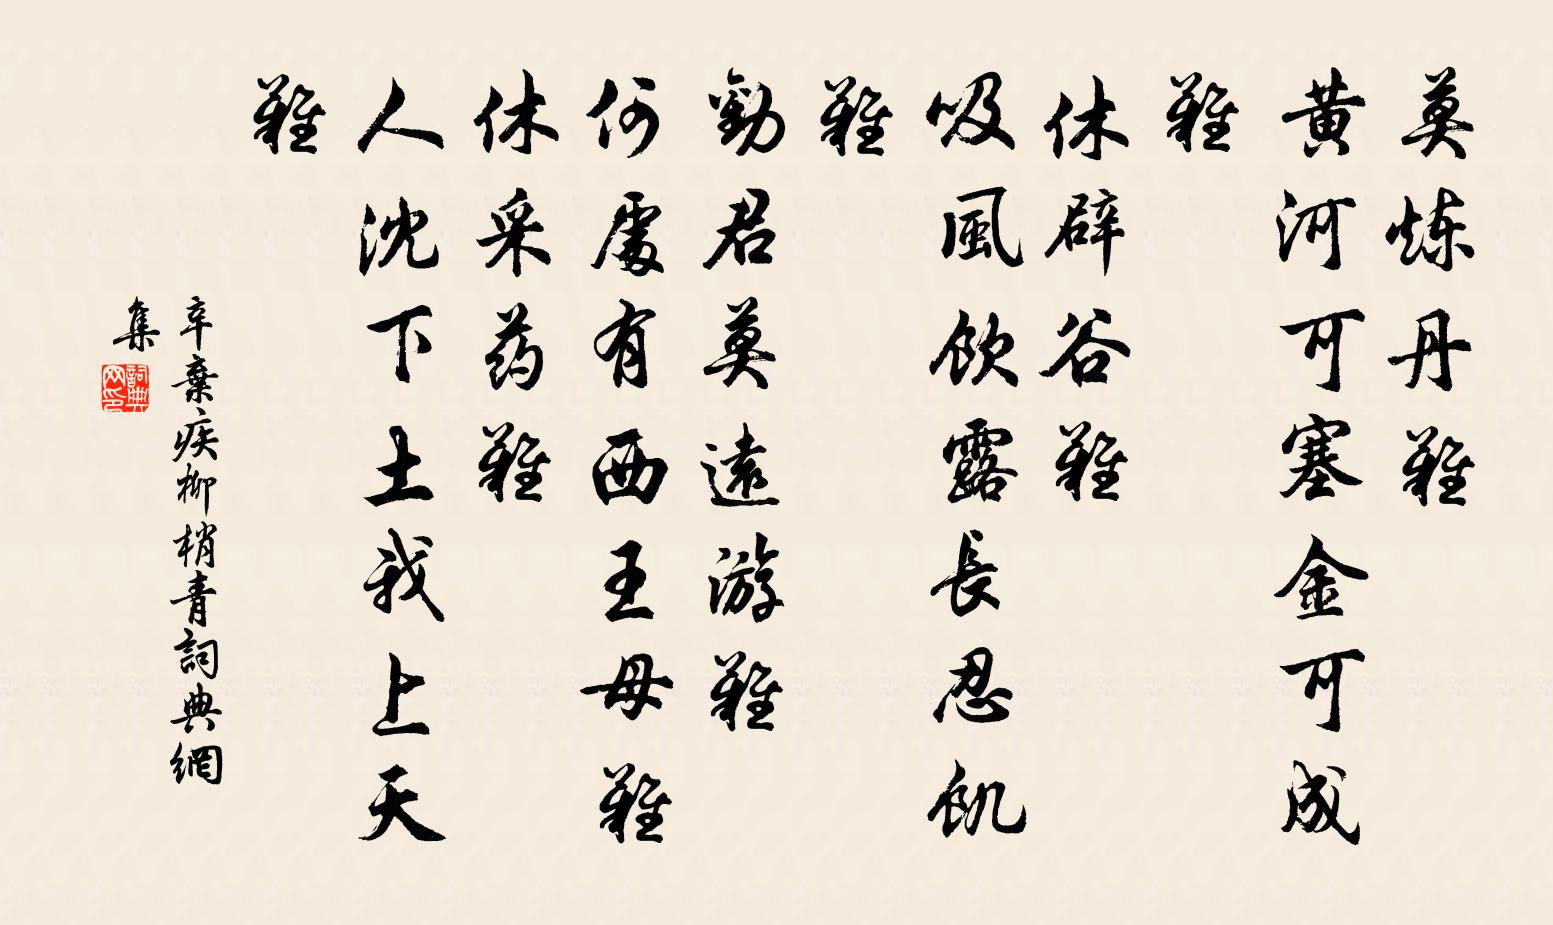 莫炼丹難
黄河可塞金可成
難
休辟谷難
吸風飲露長忍飢
難
勸君莫遠游難
何處有西王母難
休采药難
人沈下土我上天
難
辛棄疾柳梢青詞典網
集
詞典网印